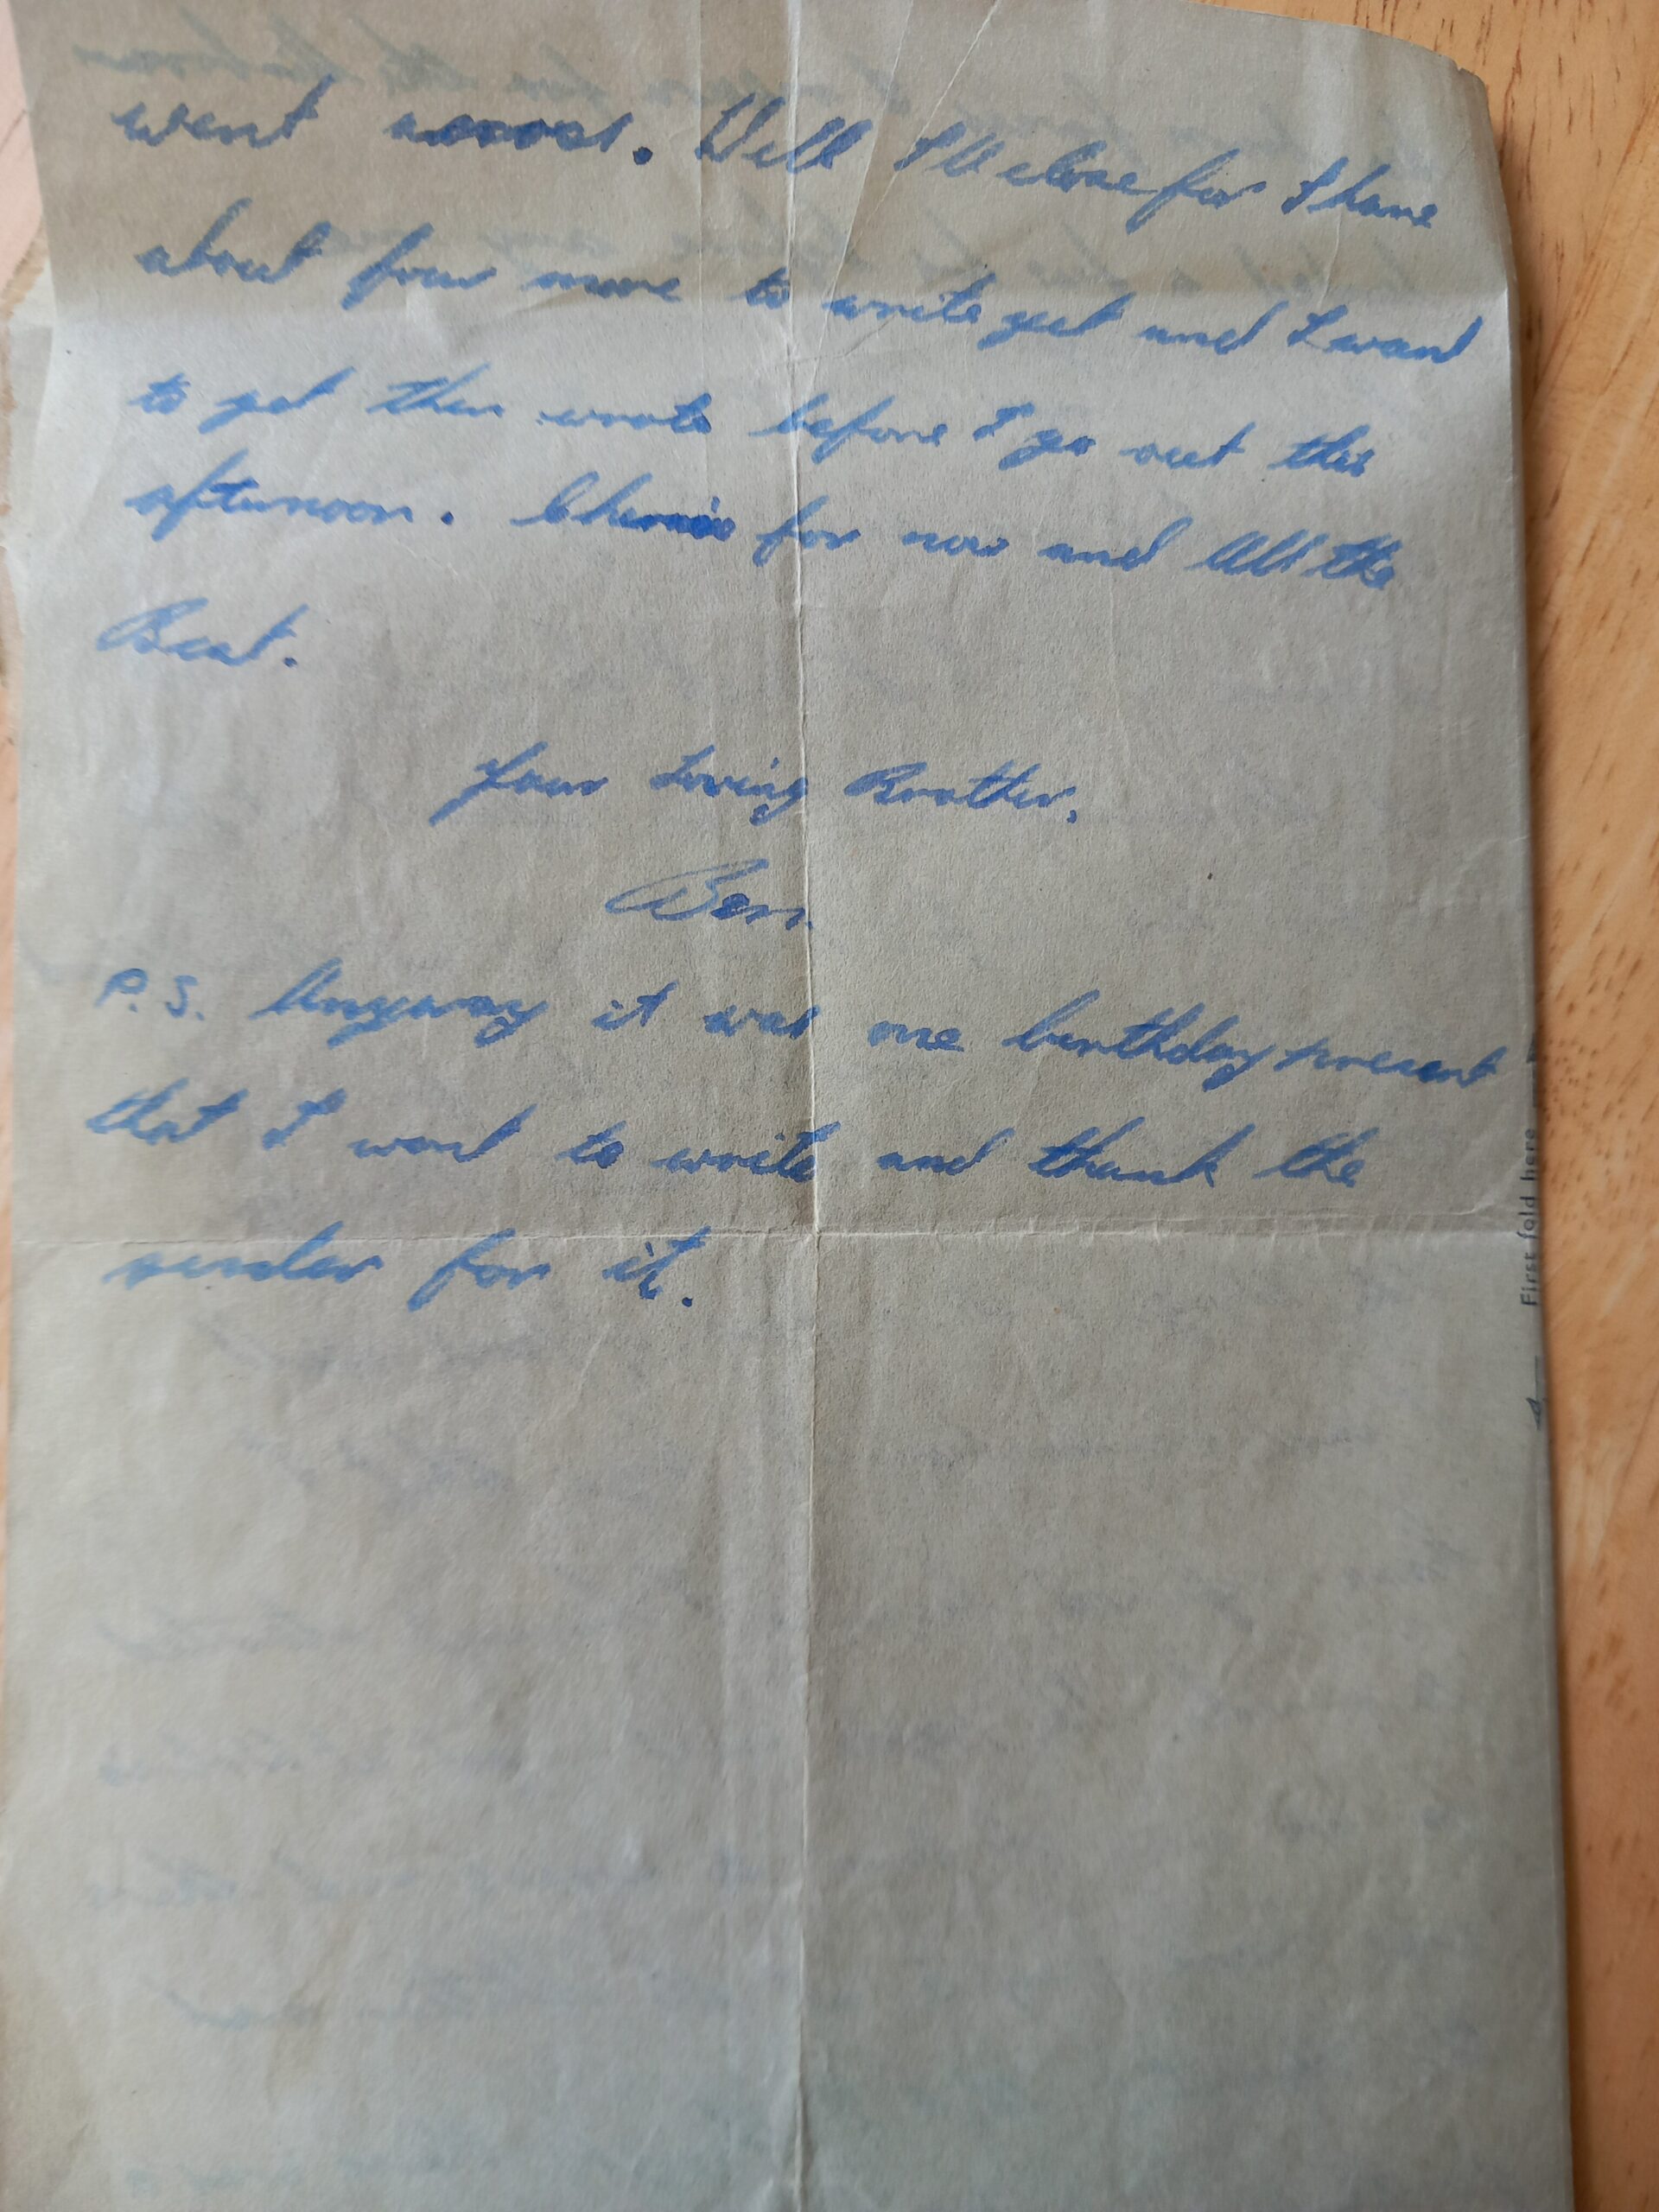 went across. Well I'll close for I have
about four more to write yet and I want
to get them wrote before I go out this
afternoon. Cheerio for now and All the
Best.
Your Loving Brother,
Ben.
P.S. Anyway it was one birthday present
that I want to write and thank the
sender for it.
First fold here